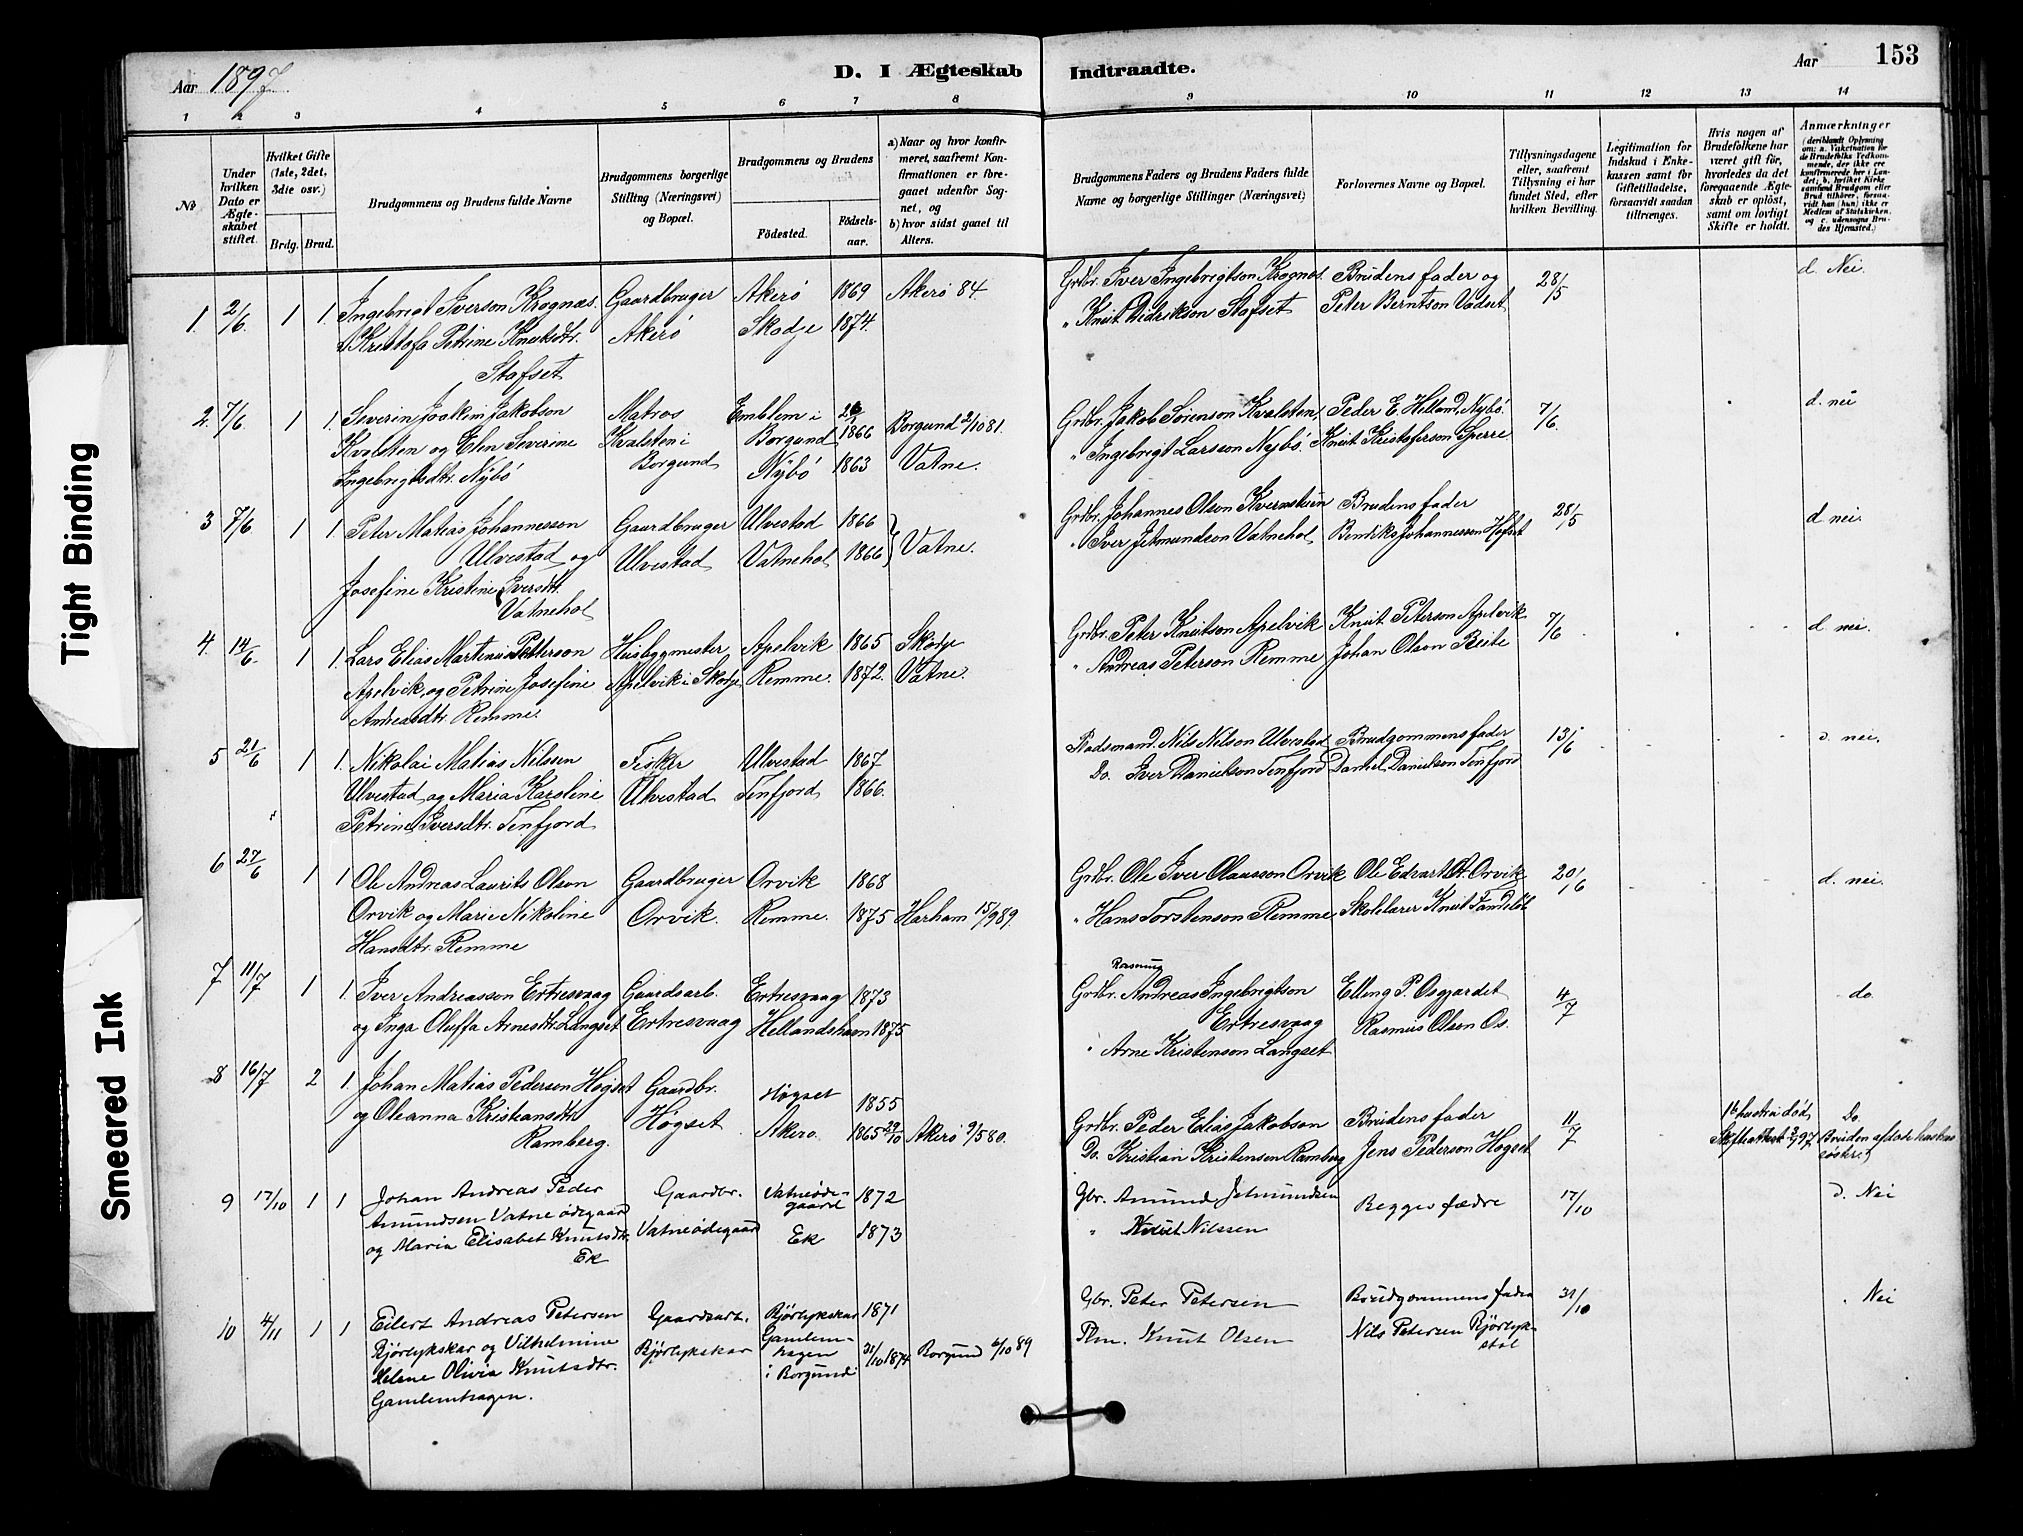 Aar 1897.
D. I Ægteskab Indtraadte.
Aar
153
1 2 3 4 5 6 7 8 9 10 11 12 13 14
No
Under hvilken Dato er Ægteskabet stiftet.
Hvilket Gifte (1ste, 2det, 3die osv.)
Brdg. Brud.
Brudgommens og Brudens fulde Navne
Brudgommens borgerlige Stilling (Næringsvei) og Bopæl.
Brudgommens og Brudens
Födested.
Födselsaar.
a) Naar og hvor konfirmeret, saafremt Konfirmationen er foregaaet udenfor Sognet, og
b) hvor sidst gaaet til Alters.
Brudgommens Faders og Brudens Faders fulde Navne og borgerlige Stillinger (Næringsvei)
Forlovernes Navne og Bopæl.
Tillysningsdagene eller, saafremt Tillysning ei har fundet Sted, efter hvilken Bevilling.
Legitimation for Indskud i Enkekassen samt for Giftetilladelse, forsaavidt saadan tiltrenges.
Hvis nogen af Brudefolkene har været gift før, hvorledes da det foregaaende Ægteskab er opløst, samt om lovligt Skifte er holdt.
Anmærkninger
(deriblandt Oplysning om: a. Vakcination for de Brudefolks Vedkommende, der ikke ere konfirmerede her i Landet; b. hvilket Kirkesamfund Brudgom eller Brud tilhører, forsaavidt han (hun) ikke er Medlem af Statskirken, og c. udensogns Brudes Hjemsted.)
1. 2/6. 1 1. Ingebrigt Iverson Krognæs Gaardbruger Akerö 1869 Akerö 84. Grdbr. Iver Ingebrigtson Krognæs. Brudens fader og 28/5 d. Nei.
Kristofa Petrine Knutsdtr. Akerö Skodje 1874. " Knut Didrikson Stafset Peter Berntson Vadset
Stafset
2. 7/6 1 1. Severin Joakim Jakobson Matros Emblem i 1866 Borgund 2/10 81. Grdbr. Jakob Sörenson Kvalsten, Peder E. Helland, Nybö. 7/6. d. nei
Kvalsten og Elen Severine Kvalsten i Borgund Nybö 1863 Vatne. " Ingebrigt Larsson Nybö. Knut Kristoferson Sperre
Ingebrigtsdtr. Nybö Borgund
3 7/6 1 1. Peter Matias Johannesson Gaardbruger Ulvestad 1866 Grdbr. Johannes Olson Brudens fader 28/5 d. nei.
Ulvestad og Ulvestad Vatnehol 1866 Vatne. " Iver Jetmundson Vatnehol Bendiks Johannesson Hofset
Josefine Kristine Iversdt.
Vatnehol
4. 14/6. 1 1. Lars Elias Martinus Petterson Husbygmester Apelvik 1865 Skodje Grdbr. Peter Knutson Apelvik Knut Peterson Apelvik 7/6 d. nei.
Apelvik, og Petrine Josefine Apelvik i Skodje Remme. 1872. Vatne. " Andreas Peterson Remme Johan Olson Beite
Andreasdtr. Remme.
5 21/6 1 1. Nikolai Matias Nilssen Fisker Ulvestad 1867 Pladsmand. Nils Nilson Ulvestad Brudgommens fader 13/6 d. nei.
Ulvestad og Maria Karoline Ulvestad Tenfjord 1866. Do. Iver Danielson Tenfjord Daniel Danielson Tenfjord
Petrine Iversdtr. Tenfjord
6 27/6 1 1 Ole Andreas Laurits Olson Gaardbruger Orvik 1868 Grdbr. Ole Iver Olausson Orvik Ole Edvart Orvik 20/6 d. nei.
Orvik og Marie Nikoline Orvik. Remme. 1875 Harham 15/9 89. " Hans Torstenson Remme Skolelærer Knut
Hansdtr. Remme
7 11/7 1 1. Iver Andreasson Ertresvaag Gaardsarb. Ertresvaag 1873 Grdbr. Andreas Ingebrigtson Elling P. Osgjardet 4/7 do.
og Inga Oluffa Arnesdtr. Langset Ertresvaag 1875 Ertresvaag Rasmus Olsen Os.
" Arne Kristenson Langset
8 16/7 2 1. Johan Matias Pederson Høgset Gaardbr. Høgset 1855 Grdbr. Peder Elias Jakobson Brudens fader 11/7 1ste hustru død Do.
og Oleanna Kristiansdtr. Høgset Akerö 1865 29/10 Akerö 9/5 80. Do. Kristian Kristensen Ramberg Jens Pederson Høgset Bruden afdøde hustrus
Ramberg. søster.)
9 17/10 1 1 Johan Andreas Peder Gaardbr. Vatneødegaard 1872 Gbr. Amund Jetmundsen Begges fædre 17/10 d. Nei
Amundsen Vatneødegaard Vatneødegaard Ek 1873 " Knut Nilssen
og Maria Elisabet Knutsdtr.
Ek
10 4/11 1 1 Eilert Andreas Petersen Gaardsarb. Bjørlykskar 1871 Gbr. Peter Petersen Brudgommens fader 31/10 Nei
Bjørlykskar og Vilhelmine Bjørlykskar Gamlemshagen i Borgund 31/10 1874 Borgund 6/10 89 Plm. Knut Olsen Nils Petersen Bjørlykstøl
Helene Olivia Knutsdtr.
Gamlemshagen.
Tight Binding
Smeared Ink